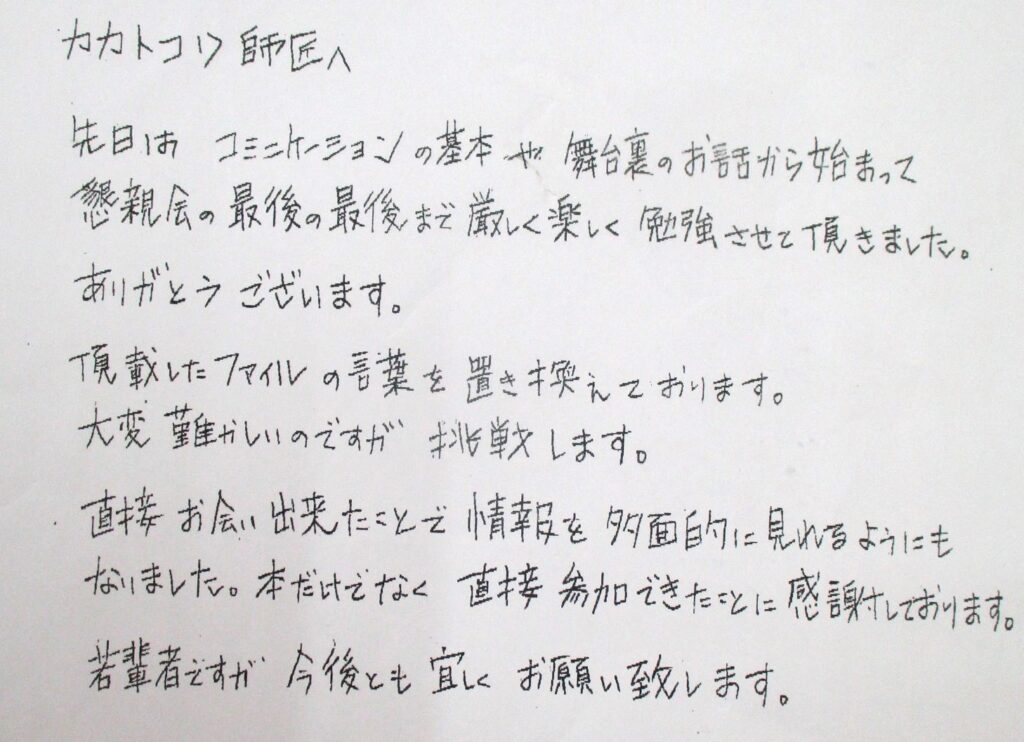 カカトコリ 師匠へ
先日は コミニケーションの基本や 舞台裏のお話から始まって
懇親会の最後の最後まで厳しく楽しく勉強させて頂きました。
ありがとうございます。
頂載したファイルの言葉を置き換えております。
大変難かしいのですが 挑戦します。
直接お会い出来たことで情報を多面的に見れるようにも
なりました。本だけでなく 直接参加できたことに感謝しております。
若輩者ですが 今後とも宜しくお願い致します。